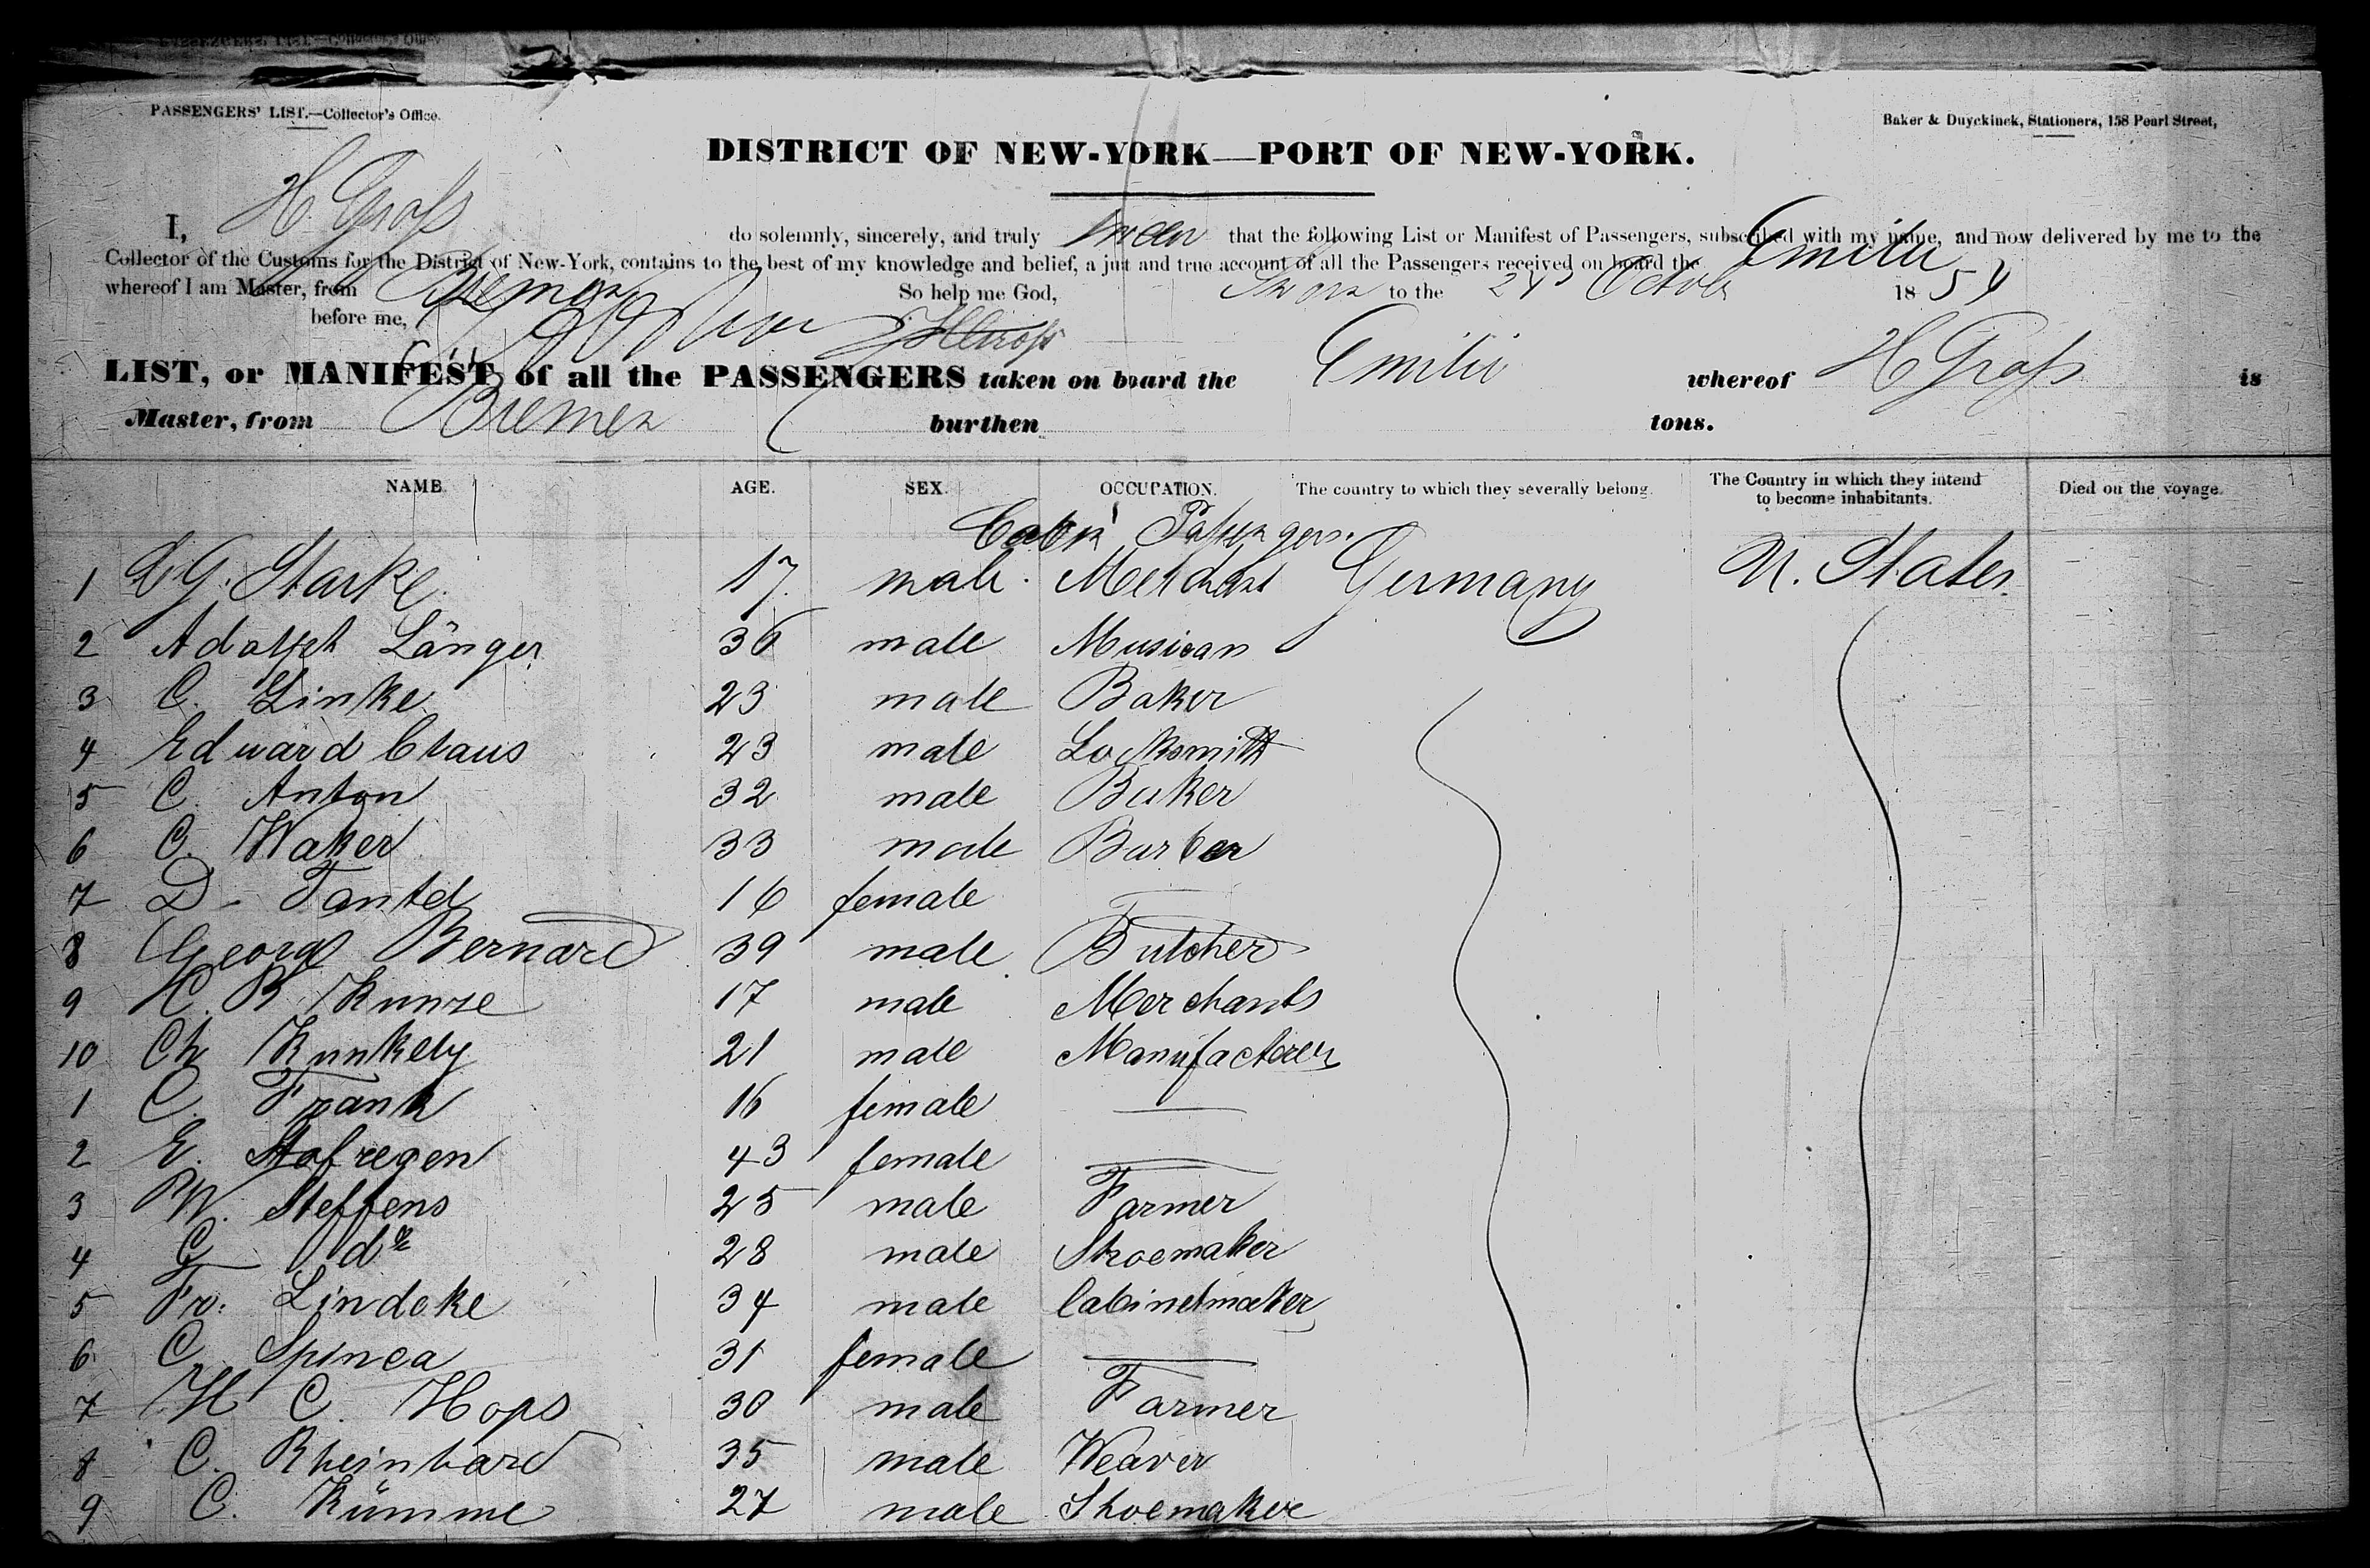 PASSENGERS' LIST.—Collector's Office.
Baker & Duyckinck, Stationers, 158 Pearl Street,
DISTRICT OF NEW-YORK—PORT OF NEW-YORK.
I, H. Groſs do solemnly, sincerely, and truly swear that the following List or Manifest of Passengers, subscribed with my name, and now delivered by me to the
Collector of the Customs for the District of New-York, contains to the best of my knowledge and belief, a just and true account of all the Passengers received on board the Emilie
whereof I am Master, from Bremen So help me God, Sworn to the 24 Octob 1854
before me, H Groſs
LIST, or MANIFEST, of all the PASSENGERS taken on board the Emilie whereof H Groſs is
Master, from Bremen burthen tons.
NAME. AGE. SEX. OCCUPATION. The country to which they severally belong. The Country in which they intend to become inhabitants. Died on the voyage.
Cabin Paſsengers.
1 G. Starke 17. male. Merchant Germany U. States.
2 Adolph Länger 36 male Musican
3 C. Linke 23 male Baker
4 Edward Claus 23 male Locksmith
5 C. Anton 32 male Baker
6 C. Waker 33 male Barber
7 D. Tantel 16 female —
8 George Bernard 39 male Butcher
9 H. B. Kunze 17 male Merchants
10 Ch Kunkely 21 male Manufacterer
1 C. Frank 16 female —
2 E. Stofregen 43 female —
3 W. Steffens 25 male Farmer
4 G do 28 male Shoemaker
5 Fr. Lindeke 34 male Cabinetmaker
6 C. Spinea 31 female —
7 H C. Hops 30 male Farmer
8 C. Rheinhard 35 male Weaver
9 C. Kümme 27 male Shoemaker